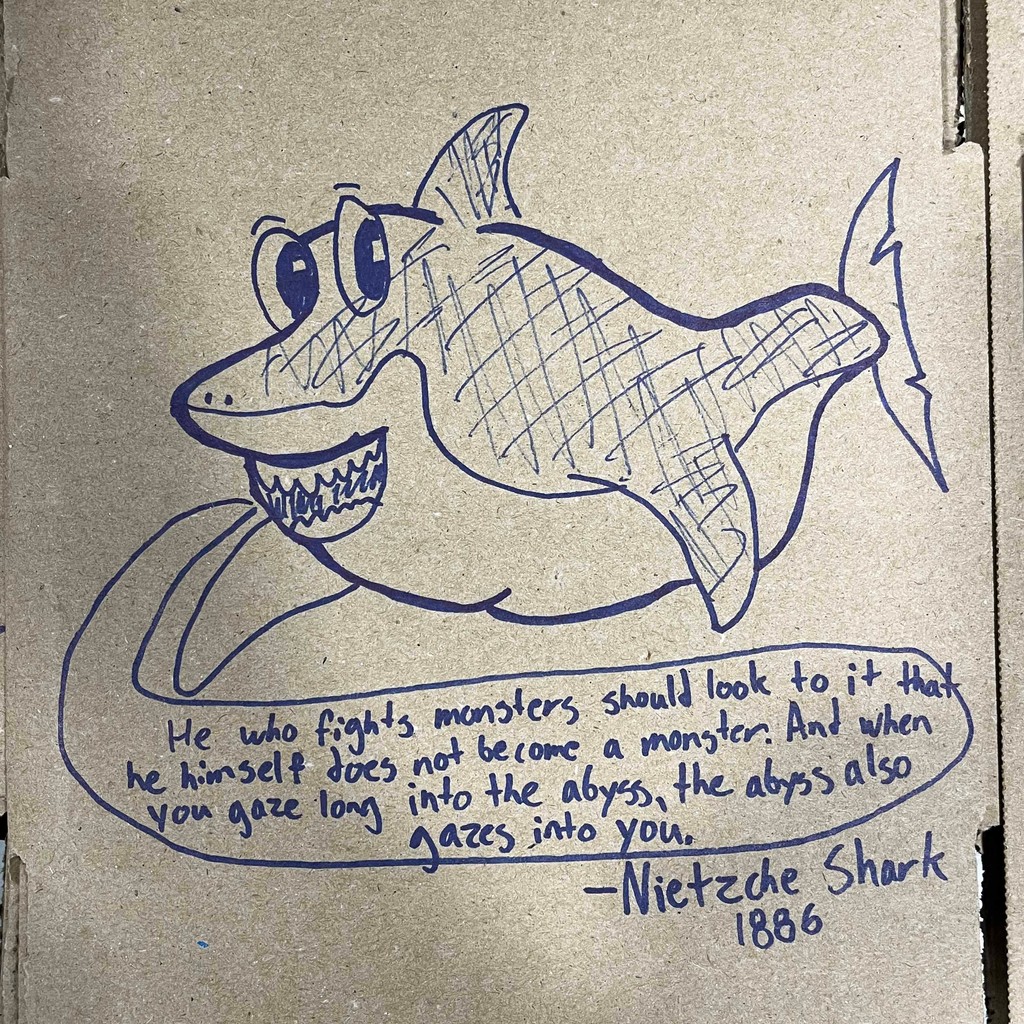 He who fights monsters should look to it that
he himself does not become a monster. And when
you gaze long into the abyss, the abyss also
gazes into you.
-Nietzche Shark
1886